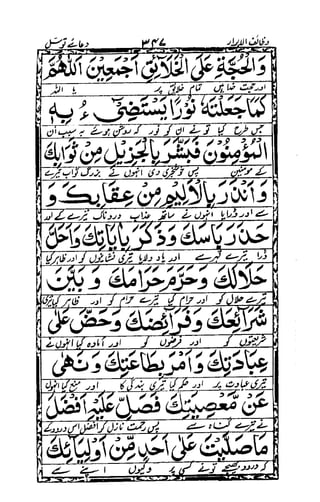 وظائف الابرار ۳۴۷ دعائے توسل
وَالْحُجَّةِ عَلَى الْخَلَائِقِ اَجْمَعِيْنَ اَللّٰهُمَّ
اور حجت خدا ہیں تمام خلائق پر یا اللہ
كَمَا جَعَلْتَهٗ نُوْرًا يَسْتَضِيْٓءُ بِهِ
جس طرح کیا تو نے ان کو نور کہ روشن ہوتے بہ سبب ان
الْمُؤْمِنُوْنَ فَبَشَّرَ بِالْجَزِيْلِ مِنْ ثَوَابِكَ
کے مومنین پس خوشخبری دی انہوں نے بزرگ ثواب تیرے
وَاَنْذَرَ بِالْاَلِيْمِ مِنْ عِقَابِكَ وَ
سے اور ڈرایا انہوں نے ساتھ عذاب دردناک تیرے کے اور
حَذَّرَ بَاْسَكَ وَذَكَّرَ بِاٰيَاتِكَ وَاَحَلَّ
ڈرا تیرے قہر سے اور یاد دلایا تیری نشانیوں کو اور ظاہر کیا
حَلَالَكَ وَحَرَّمَ حَرَامَكَ وَ بَيَّنَ
تیرے حلال کو اور حرام کیا تیرے حرام کو اور ظاہر کیا تیری
شَرَائِعَكَ وَفَرَائِضَكَ وَحَضَّ عَلٰى
شریعتوں کو اور فرضوں کو اور آمادہ کیا انہوں نے
عِبَادَتِكَ وَاَمَرَ بِطَاعَتِكَ وَنَهٰى
تیری عبادت پر اور حکم کیا تیری بندگی کا اور منع کیا انہوں
عَنْ مَعْصِيَتِكَ فَصَلِّ عَلَيْهِمْ اَفْضَلَ
نے تیرے گناہ سے پس رحمت نازل کر افضل اس درود کے
مَا صَلَّيْتَ عَلٰى اَحَدٍ مِّنْ اَوْلِيَائِكَ
کہ درود بھیجے تو نے کسی پر ولیوں اپنے سے